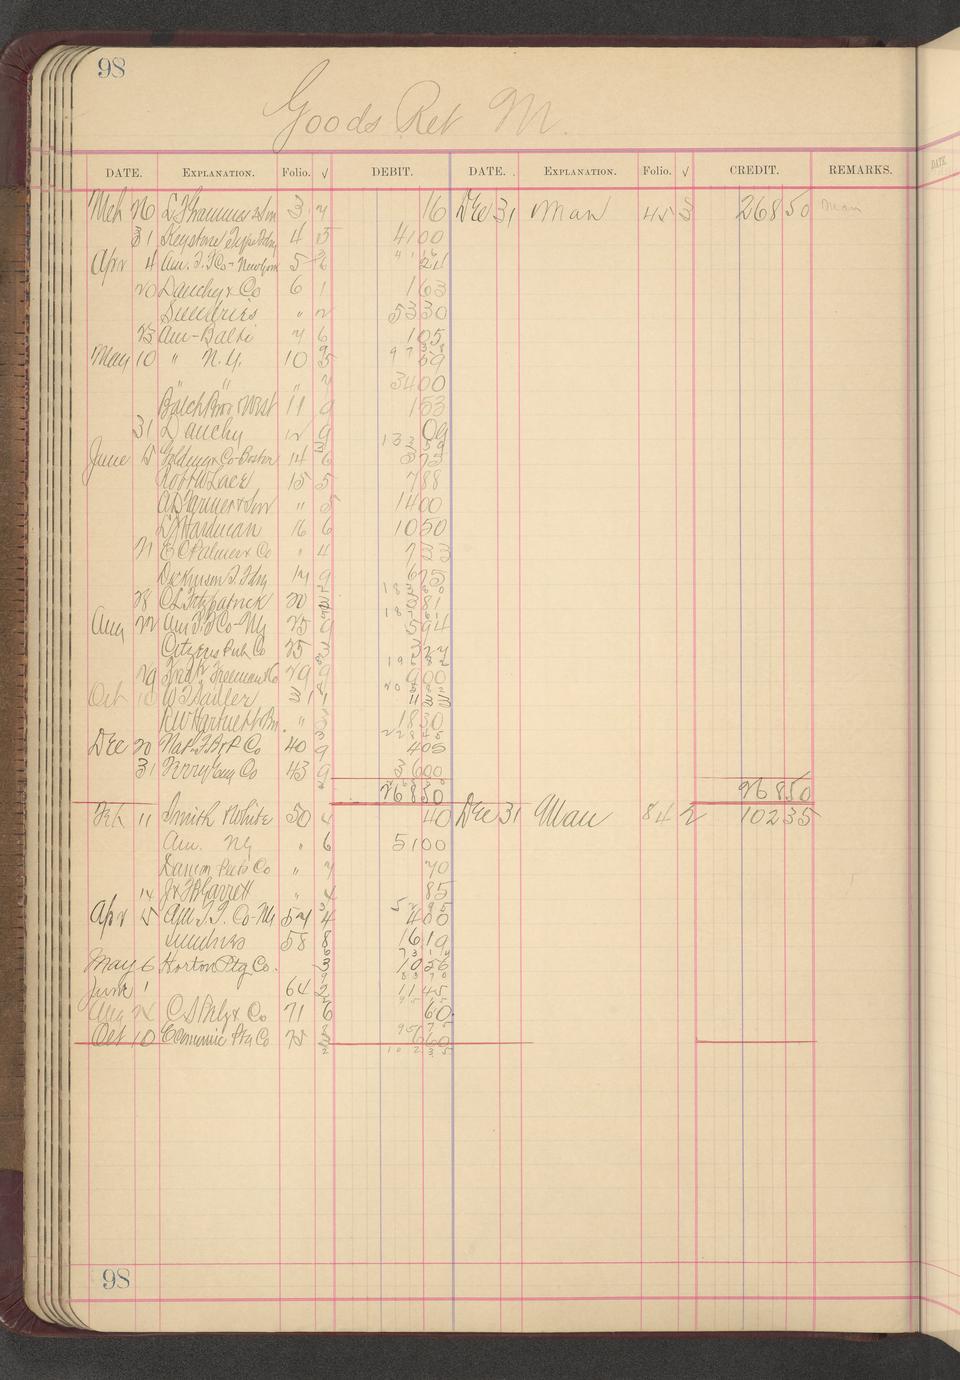 98
Goods Ret M.
DATE. EXPLANATION. Folio. √ DEBIT. DATE. EXPLANATION. Folio. √ CREDIT. REMARKS.
Mch 26 & Son 3 7 16 Dec 31 Man 45 3 268 50 Man
31 Keystone Type Fdry 4 5 41 00
Apr 4 Am. T. F Co - New York 5 6 24
20 Dauchy & Co 6 1 1 63
Sundries " 2 53 30
23 Am - Balti 7 6 1 05
May 10 " N. Y. 10 5 59
" " " 7 34 00
Balch Bros & West 11 9 1 53
31 Dauchy 12 9 09
June 5 Golding & Co - Boston 14 6 3 73
15 5 7 88
A D Farmer & Son " 5 14 00
Hardman 16 6 10 50
21 E C Palmer & Co " 4 7 33
Dickinson T. Fdry 17 9 6 75
28 Fitzpatrick 20 2 81
Aug 22 Am T. F Co - Ny 25 9 5 94
Citizens Pub Co 25 3 3 27
29 Fred K Freeman & Co 29 9 9 00
Oct 10 W. T. Sadler 31 1 11 33
R W Hartnett & Bro. " 3 18 30
Dec 20 Nat. P Co 40 9 4 05
31 Co 43 9 36 00
268 50 268 50
Feb 11 Smith & White 50 40 Dec 31 Man 84 2 102 35
Am. Ny " 6 51 00
Pub Co " 7 70
14 J & F B Garrett " 4 85
Apr 5 Am. T. F. Co - Ny 57 4 4 00
Sundries 58 8 16 19
May 6 Horton Ptg Co. 3 10 56
June 1 64 2 11 45
Aug & Co 71 6 60
Oct 10 Economic Ptg Co 75 6 60
102 35
98